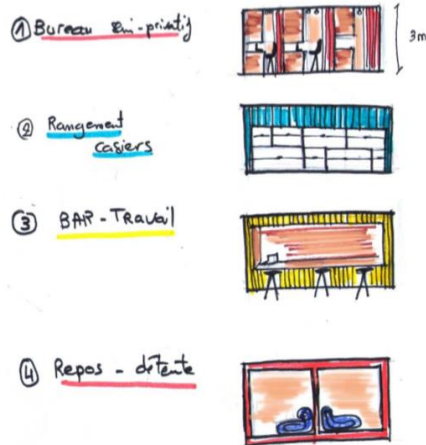 ① Bureau
3m
② Rangement
casiers
③ BAR - Travail
④ Repos - détente